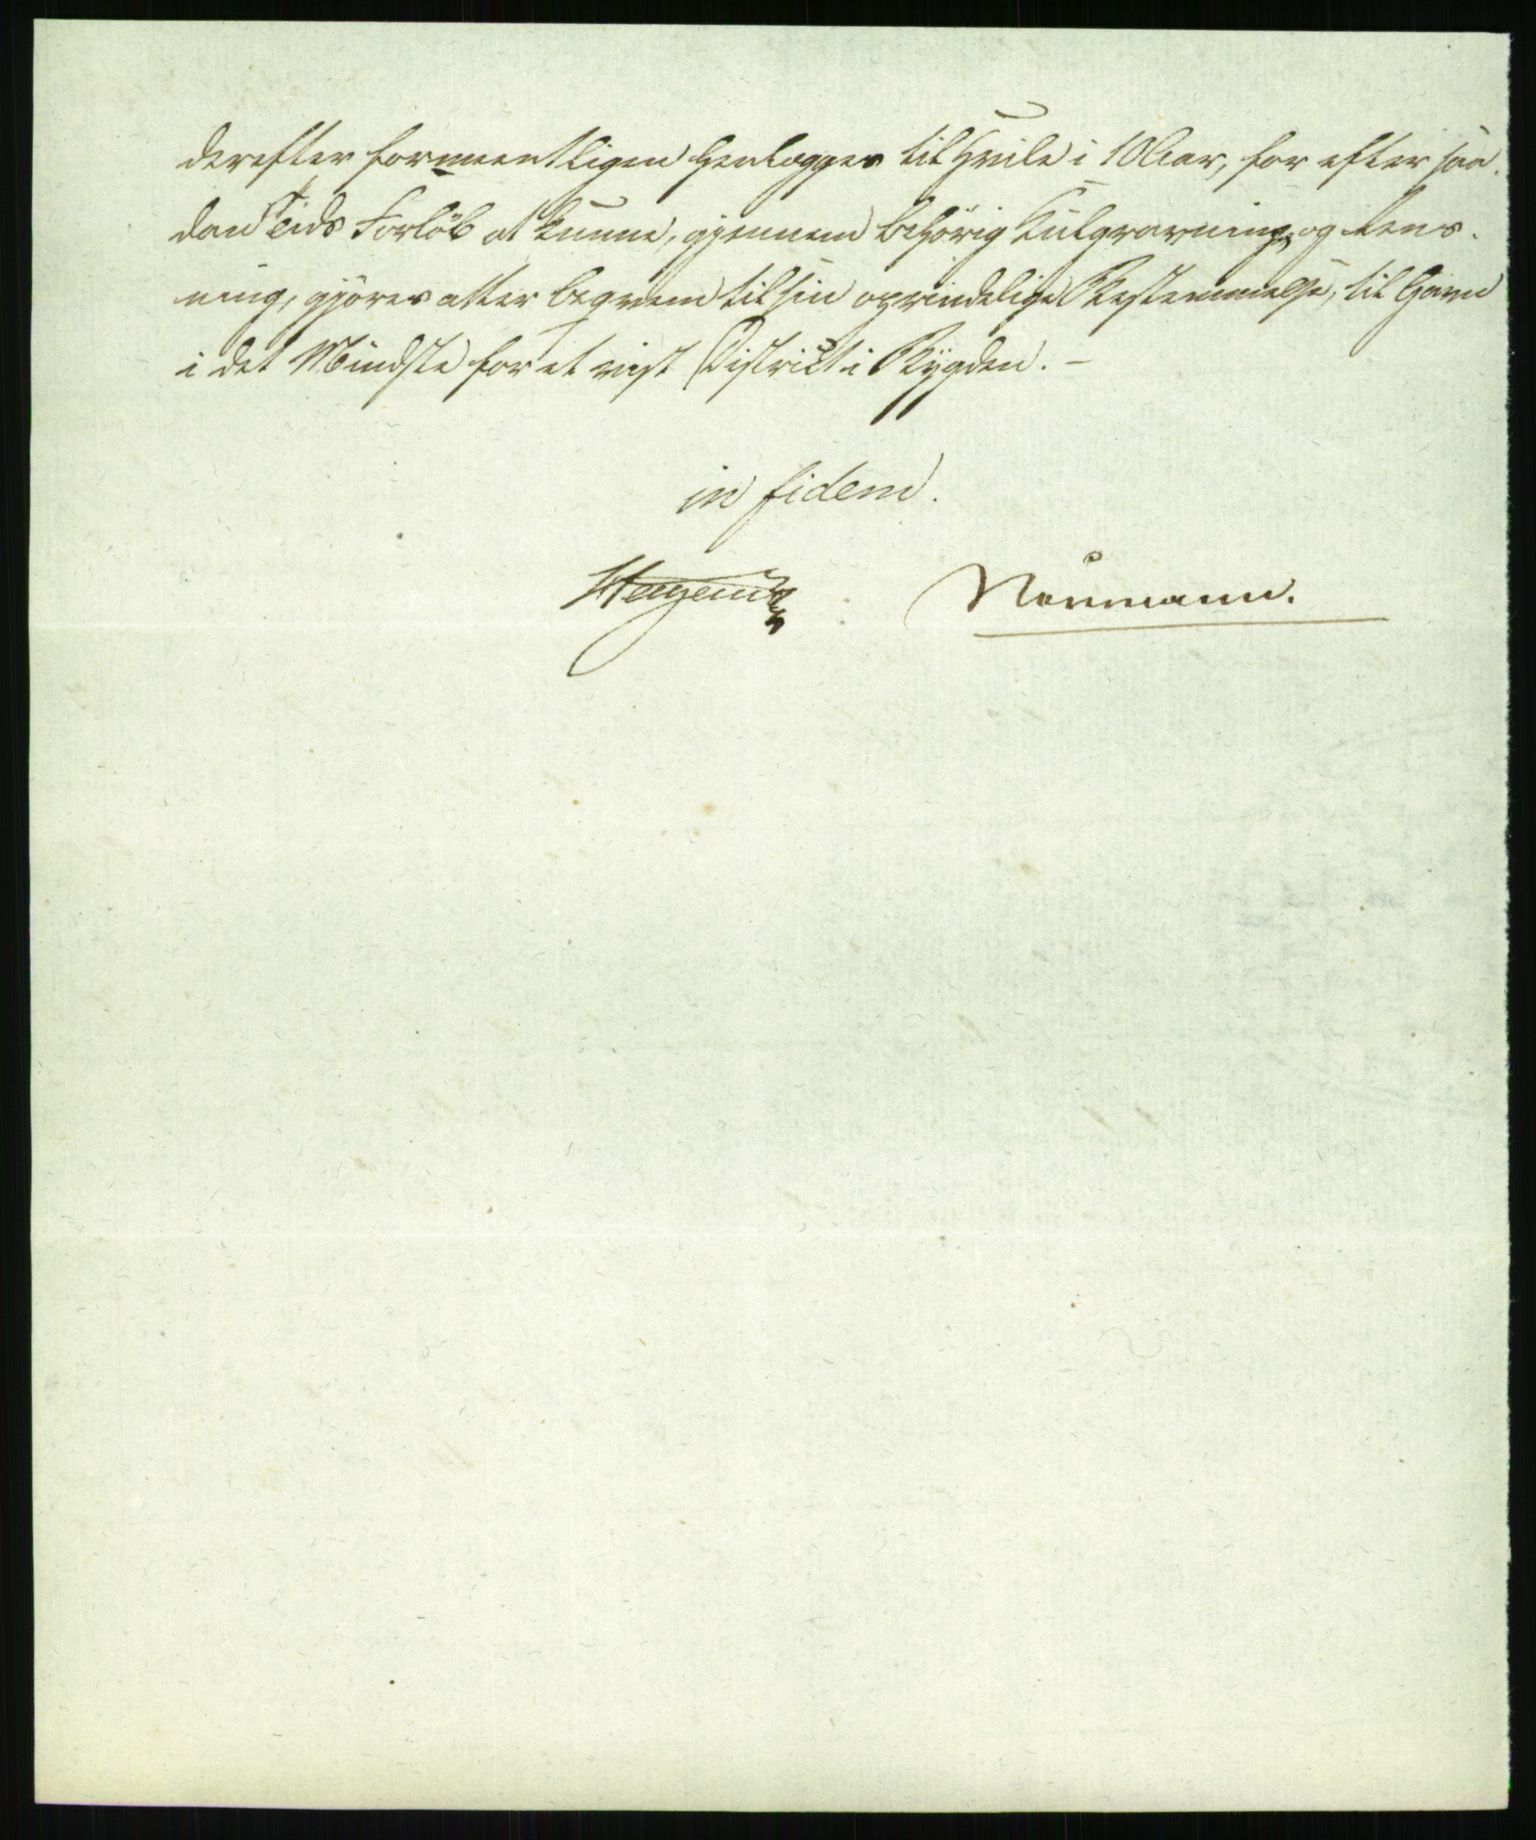 derefter formeentligen henlægges til Hvile i 10 Aar, for efter saa-
dan Tids Forløb at kunne, gjennem behørig Kulgravning og Rens-
ning, gjøres atter beqvem til sin oprindelige Bestemmelse, til Gavn
i det Mindste for et vist District i Bygden. –
in fidem.
Neumann.